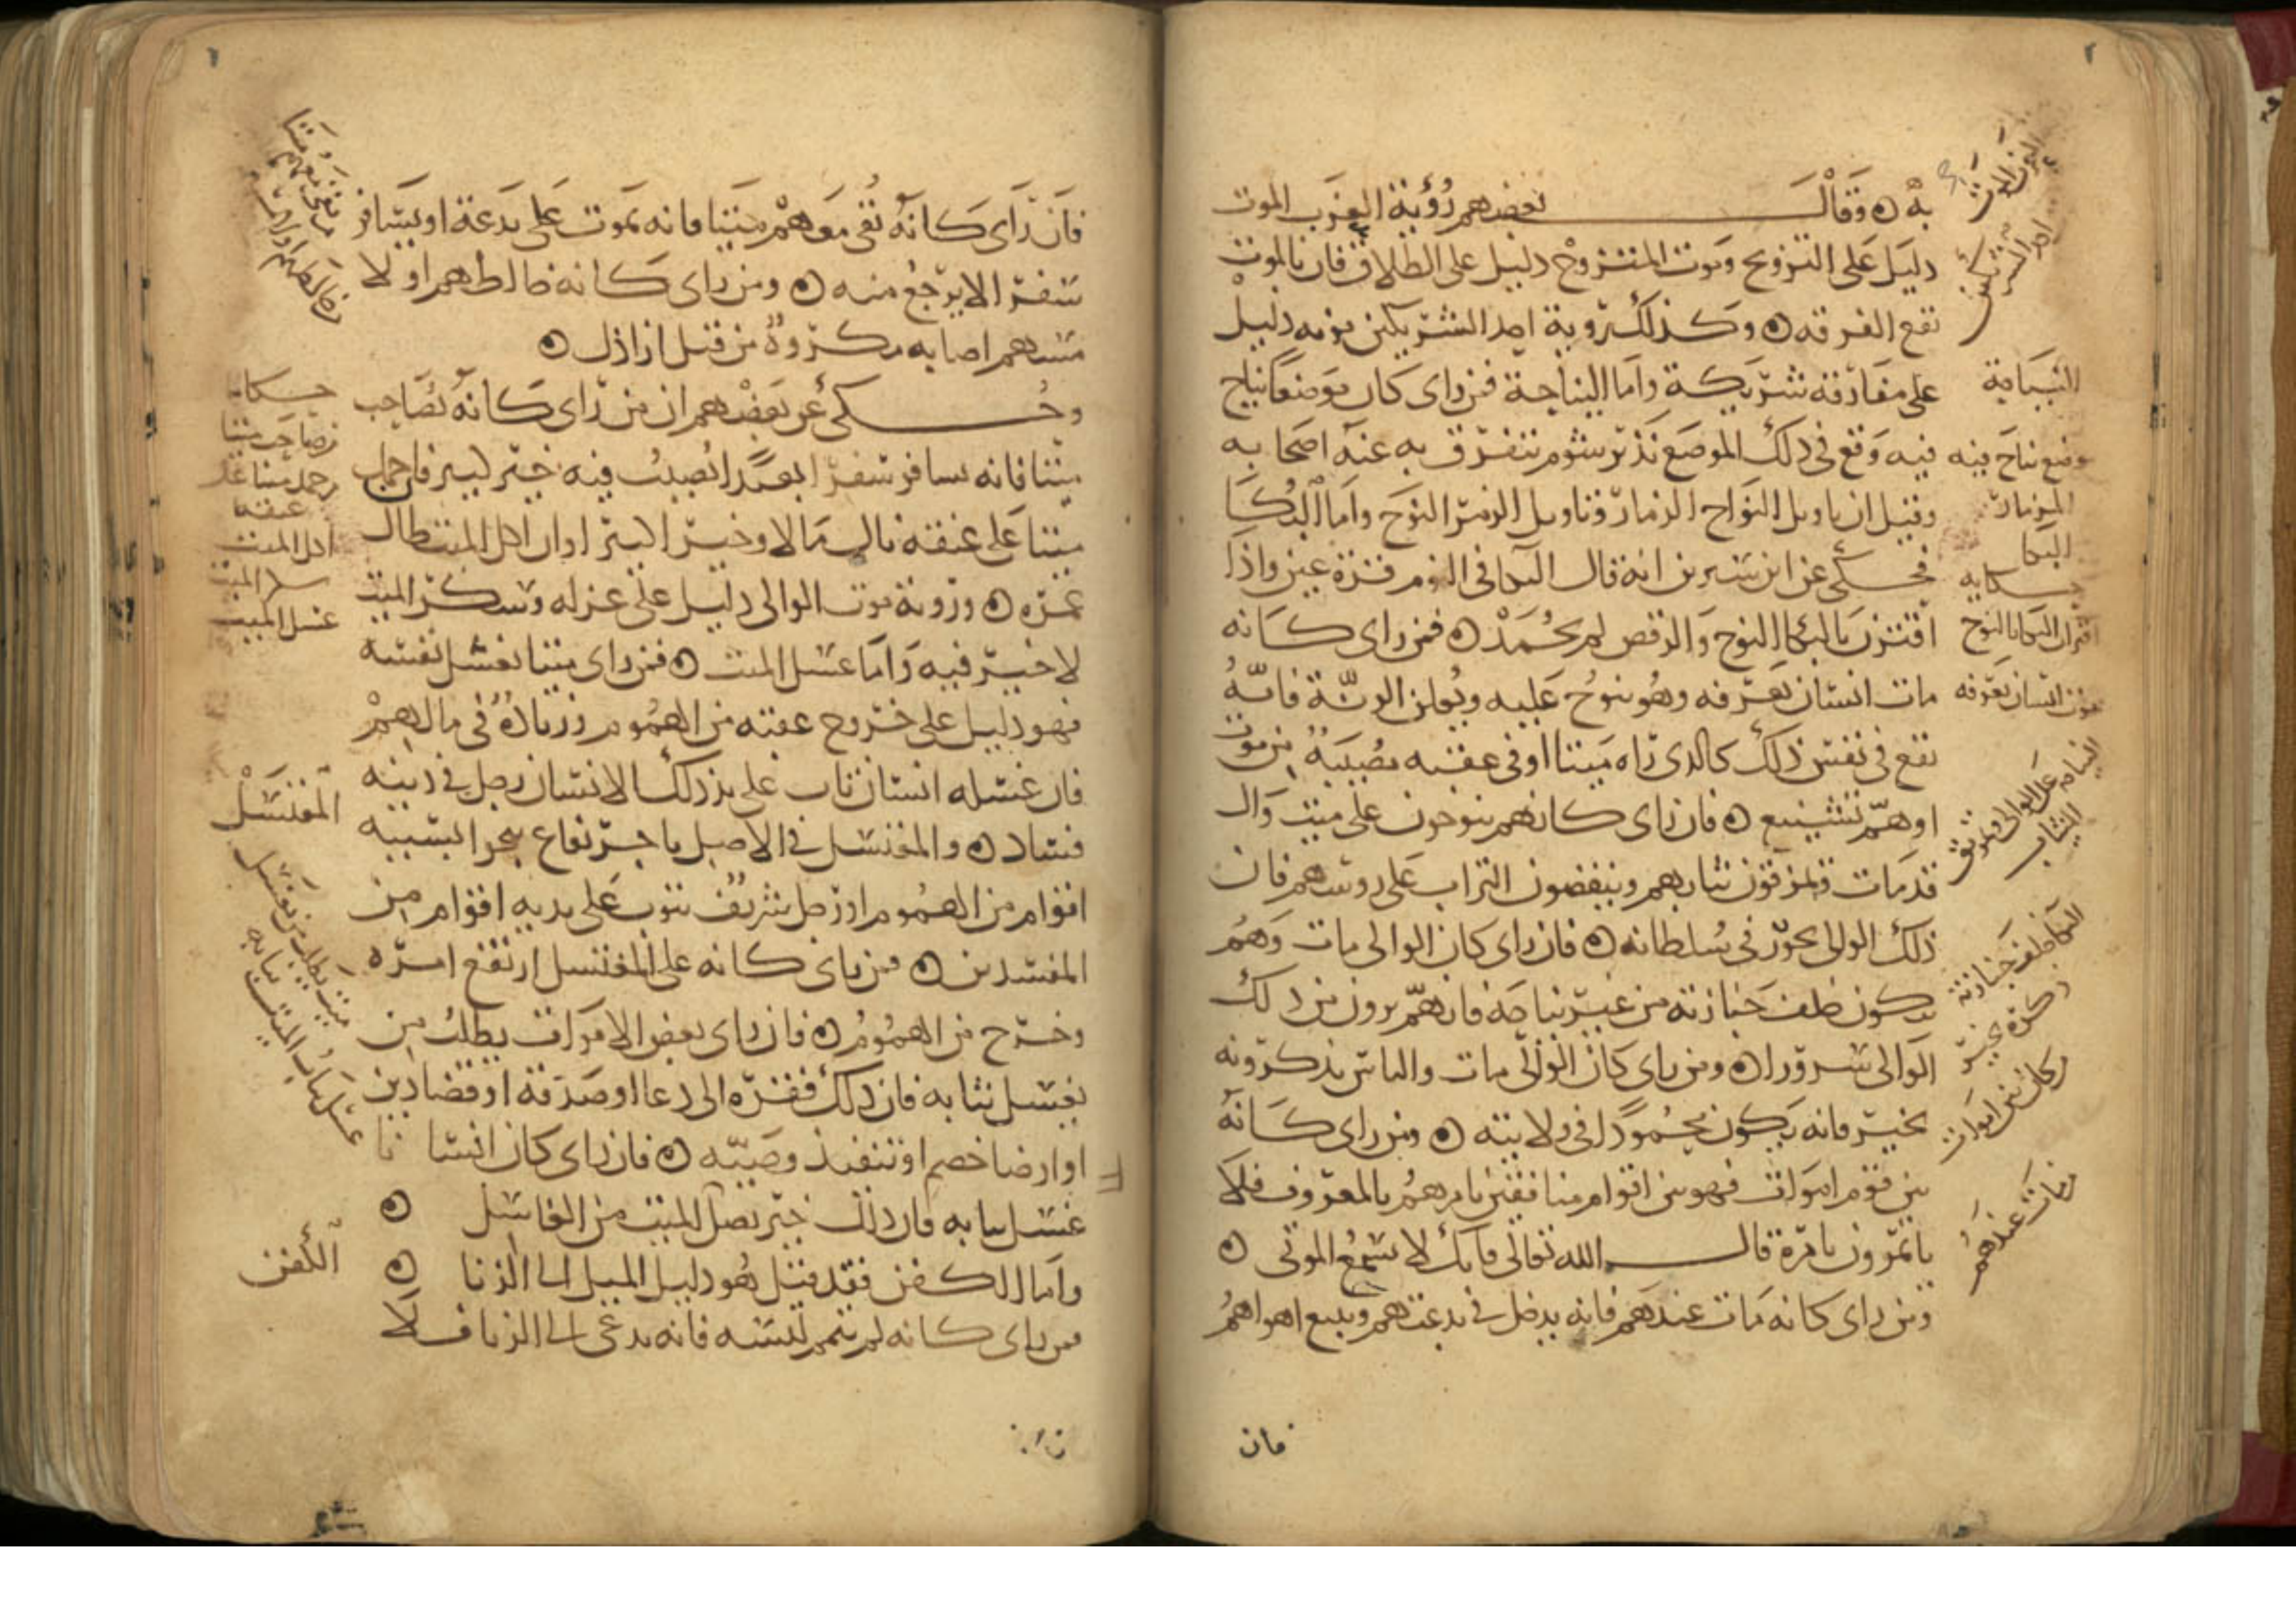 به ۞ وقال بعضهم رؤية العزب الموت
دليل على التزويج وموت المتزوج دليل على الطلاق فان بالموت
تقع الفرقه ۞ وكذلك روية احد الشريكين موته دليل
على مفارقة شريكة واما النياحة فمن راى كان موضعا يناح
فيه وقع فى ذلك الموضع تدبر شوم يتفرق به عنه اصحابه
وقيل ان تاويل النواح الزمار وتاويل الزمر النوح واما البكا
فحكي عن ابن سيرين انه قال البكا فى النوم قرة عين واذا
اقترن بالبكا النوح والرقص لم يحمد ۞ فمن راى كانه
مات انسان يعرفه وهو ينوح عليه ويعلن الرنة فانه
تقع في نفس ذلك كالذى راه ميتا او في عقبه مصيبة من موت
او هم شنيع ۞ فان راى كانهم ينوحون على ميت وال
قد مات ويمزقون ثيابهم وينفضون التراب على روسهم فان
ذلك الوالى يجور فى سلطانه ۞ فان راى كان الوالى مات وهم
يبكون خلف جنازته من غير نياحة فانهم يرون من ذلك
الوالى سرورا ۞ ومن راى كان الوالى مات والناس يذكرونه
بخير فانه يكون محمودا فى ولايته ۞ ومن راى كانه
بين قوم اموات فهو بين اقوام منافقين يامرهم بالمعروف فلا
ياتمرون بامره قال الله تعالى فانك لا تسمع الموتى ۞
ومن راى كانه مات عندهم فانه يدخل في بدعتهم ويتبع اهواهم
النياحة
موضع يناح فيه
المزمار
البكا
حكايه
اقتران البكا بالنوح
موت انسان يعرفه
النياحه على الوالى وتمزيق
الثياب
البكا خلف جنازته
ذكره بخير
كان بين اموات
مات عندهم
فان
فان راى كانه بقى معهم ميتا فانه يموت على بدعة او يسافر
سفرا لا يرجع منه ۞ ومن راى كانه خالطهم او لا
مسهم اصابه مكروه من قبل اراذل ۞
وحكي عن بعضهم ان من راى كانه يصاحب
ميتا فانه يسافر سفرا بعيدا يصيب فيه خير كبير فان حمل
ميتا على عنقه نال مالا وخير اكبير او ان اكل الميت طال
عمره ۞ وروية موت الوالى دليل على عزله وسكر الميت
لا خير فيه واما غسل الميت ۞ فمن راى ميتا يغسل نفسه
فهو دليل على خروج عقبه من الهموم وزيادة فى مالهم
فان غسله انسان تاب على يد ذلك الانسان رجل في دينه
فساد ۞ والمغتسل في الاصل تاجر نفاع ينجوا بسببه
اقوام من الهموم او رجل شريف يتوب على يديه اقوام من
المفسدين ۞ فمن راى كانه على المغتسل ارتفع امره
وخرج من الهموم ۞ فان راى بعض الاموات يطلب من
يغسل ثيابه فان ذلك فقره الى دعا او صدقة او قضا دين
او ارضا خصم او تنفيذ وصيته ۞ فان راى كان انسانا
غسل ثيابه فان ذلك خير يصل للميت من الغاسل ۞
واما الكفن فقد قيل هو دليل الميل الى الزنا ۞
فمن راى كانه لم يتم لبسه فانه يدعى الى الزنا فلا
حكايه
من صاحب ميتا
من حمل ميتا على
عنقه
اكل الميت
سكر الميت
غسل الميت
المغتسل
ميت يطلب من يغسل
ثيابه
غسل ثياب الميت
الكفن